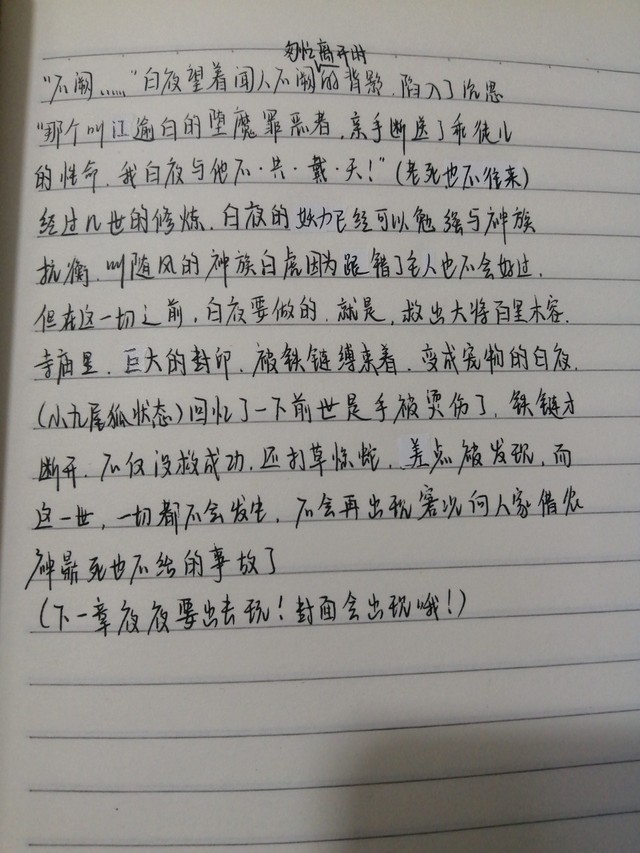 匆忙离开时
“不阙……”白夜望着闻人不阙的背影，陷入了沉思
“那个叫江逾白的堕魔罪恶者，亲手断送了乖徒儿
的性命，我白夜与他不·共·戴·天！”(老死也不往来)
经过几世的修炼，白夜的妖力已经可以勉强与神族
抗衡，叫随风的神族白虎因为跟错了主人也不会好过，
但在这一切之前，白夜要做的，就是，救出大将百里木容，
寺庙里，巨大的封印，被铁链缚束着，变成宠物的白夜，
(小九尾狐状态)回忆了一下前世是手被烫伤了，铁链才
断开，不仅没救成功，还打草惊蛇，差点被发现，而
这一世，一切都不会发生，不会再出现害沈问人家借农
神鼎死也不给的事故了
(下一章夜夜要出去玩！封面会出现哦！)